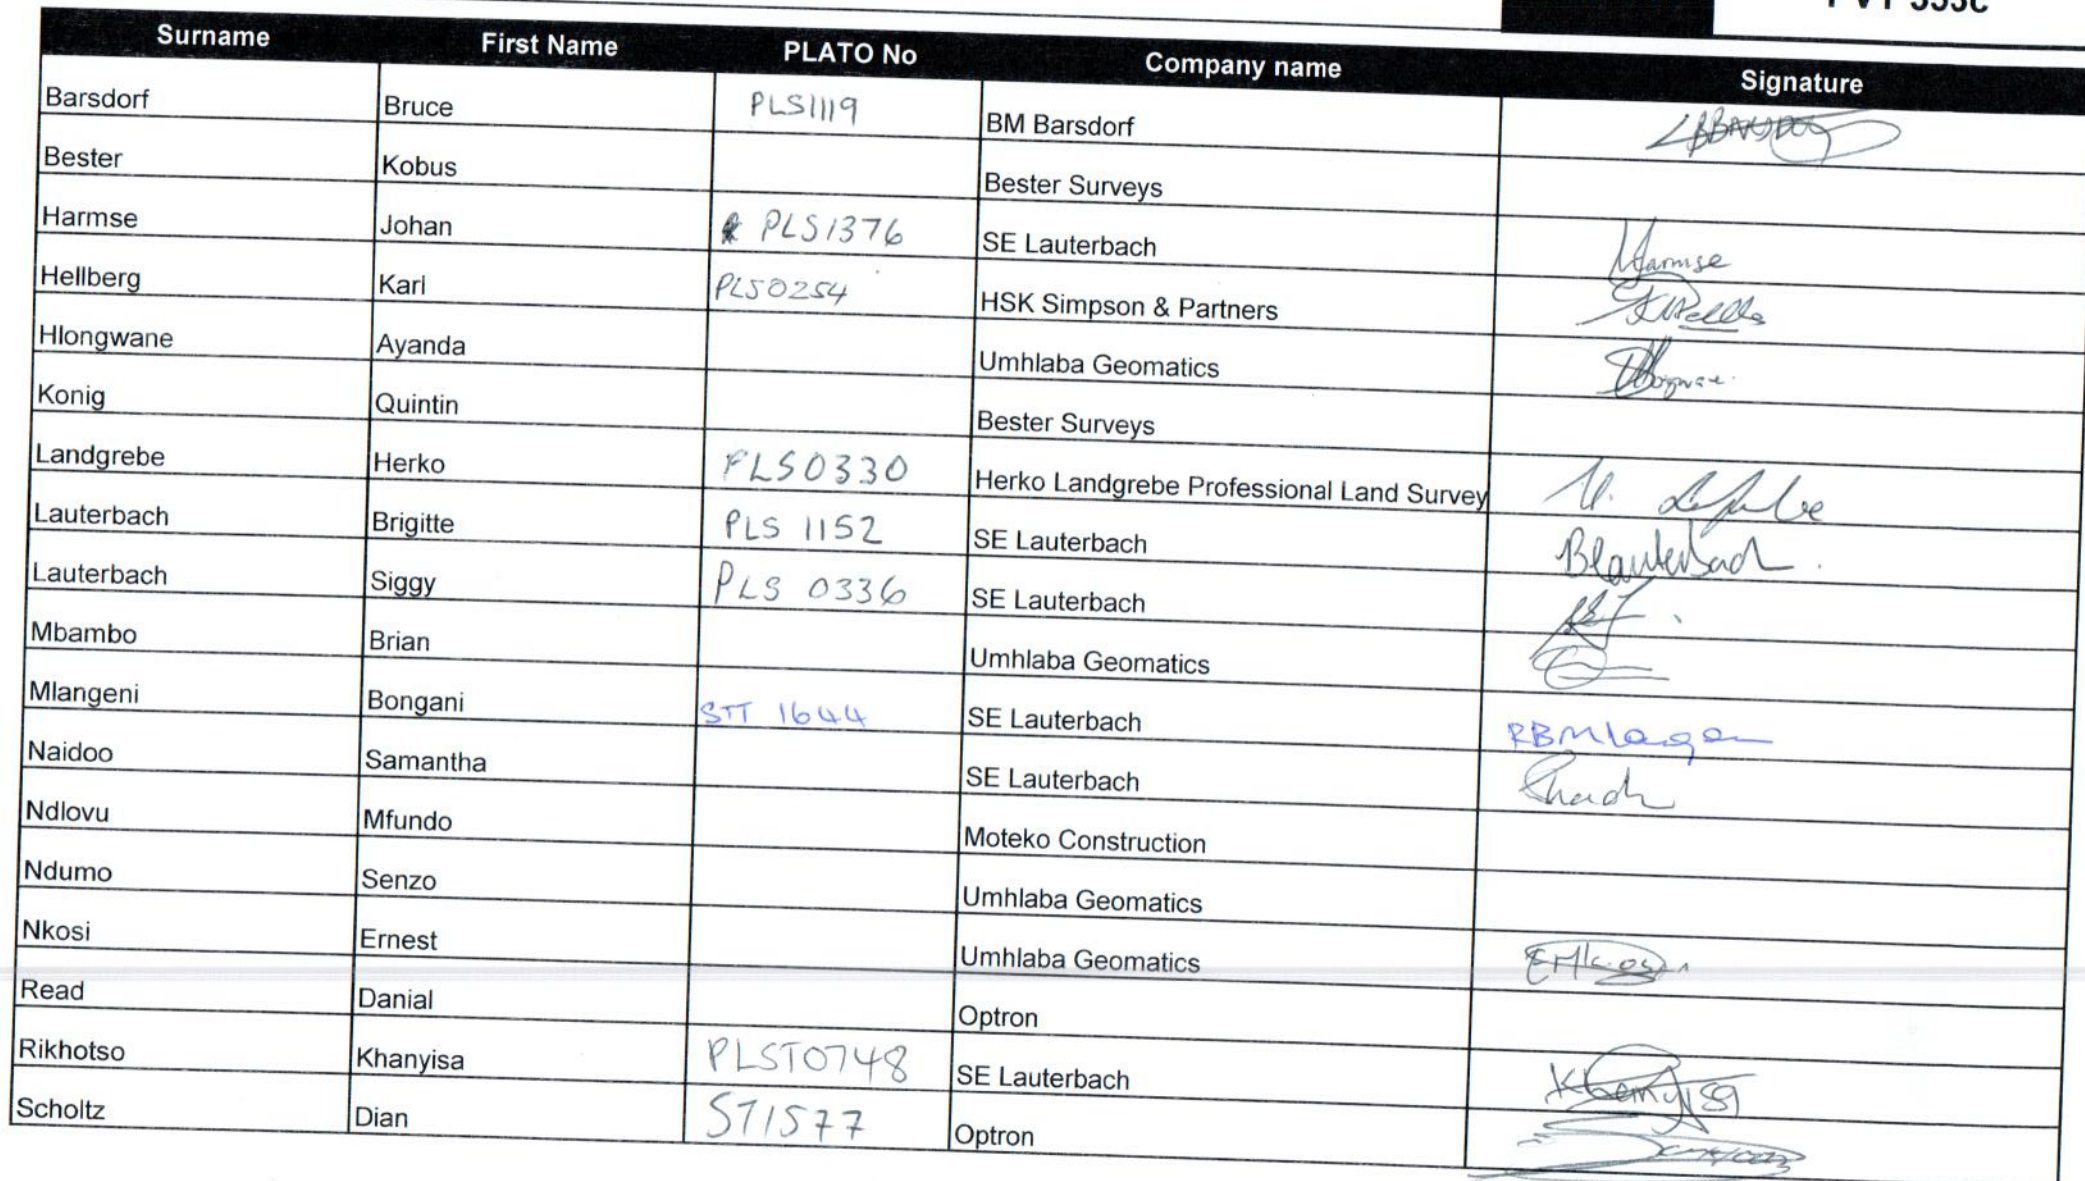 Surname First Name PLATO No Company name Signature
Barsdorf Bruce PLS1119 BM Barsdorf
Bester Kobus Bester Surveys
Harmse Johan PLS1376 SE Lauterbach Harmse
Hellberg Karl PLS0254 HSK Simpson & Partners
Hlongwane Ayanda Umhlaba Geomatics
Konig Quintin Bester Surveys
Landgrebe Herko PLS0330 Herko Landgrebe Professional Land Survey
Lauterbach Brigitte PLS 1152 SE Lauterbach BLauterbach
Lauterbach Siggy PLS 0336 SE Lauterbach
Mbambo Brian Umhlaba Geomatics
Mlangeni Bongani STT 1644 SE Lauterbach
Naidoo Samantha SE Lauterbach
Ndlovu Mfundo Moteko Construction
Ndumo Senzo Umhlaba Geomatics
Nkosi Ernest Umhlaba Geomatics
Read Danial Optron
Rikhotso Khanyisa PLST0748 SE Lauterbach
Scholtz Dian ST1577 Optron